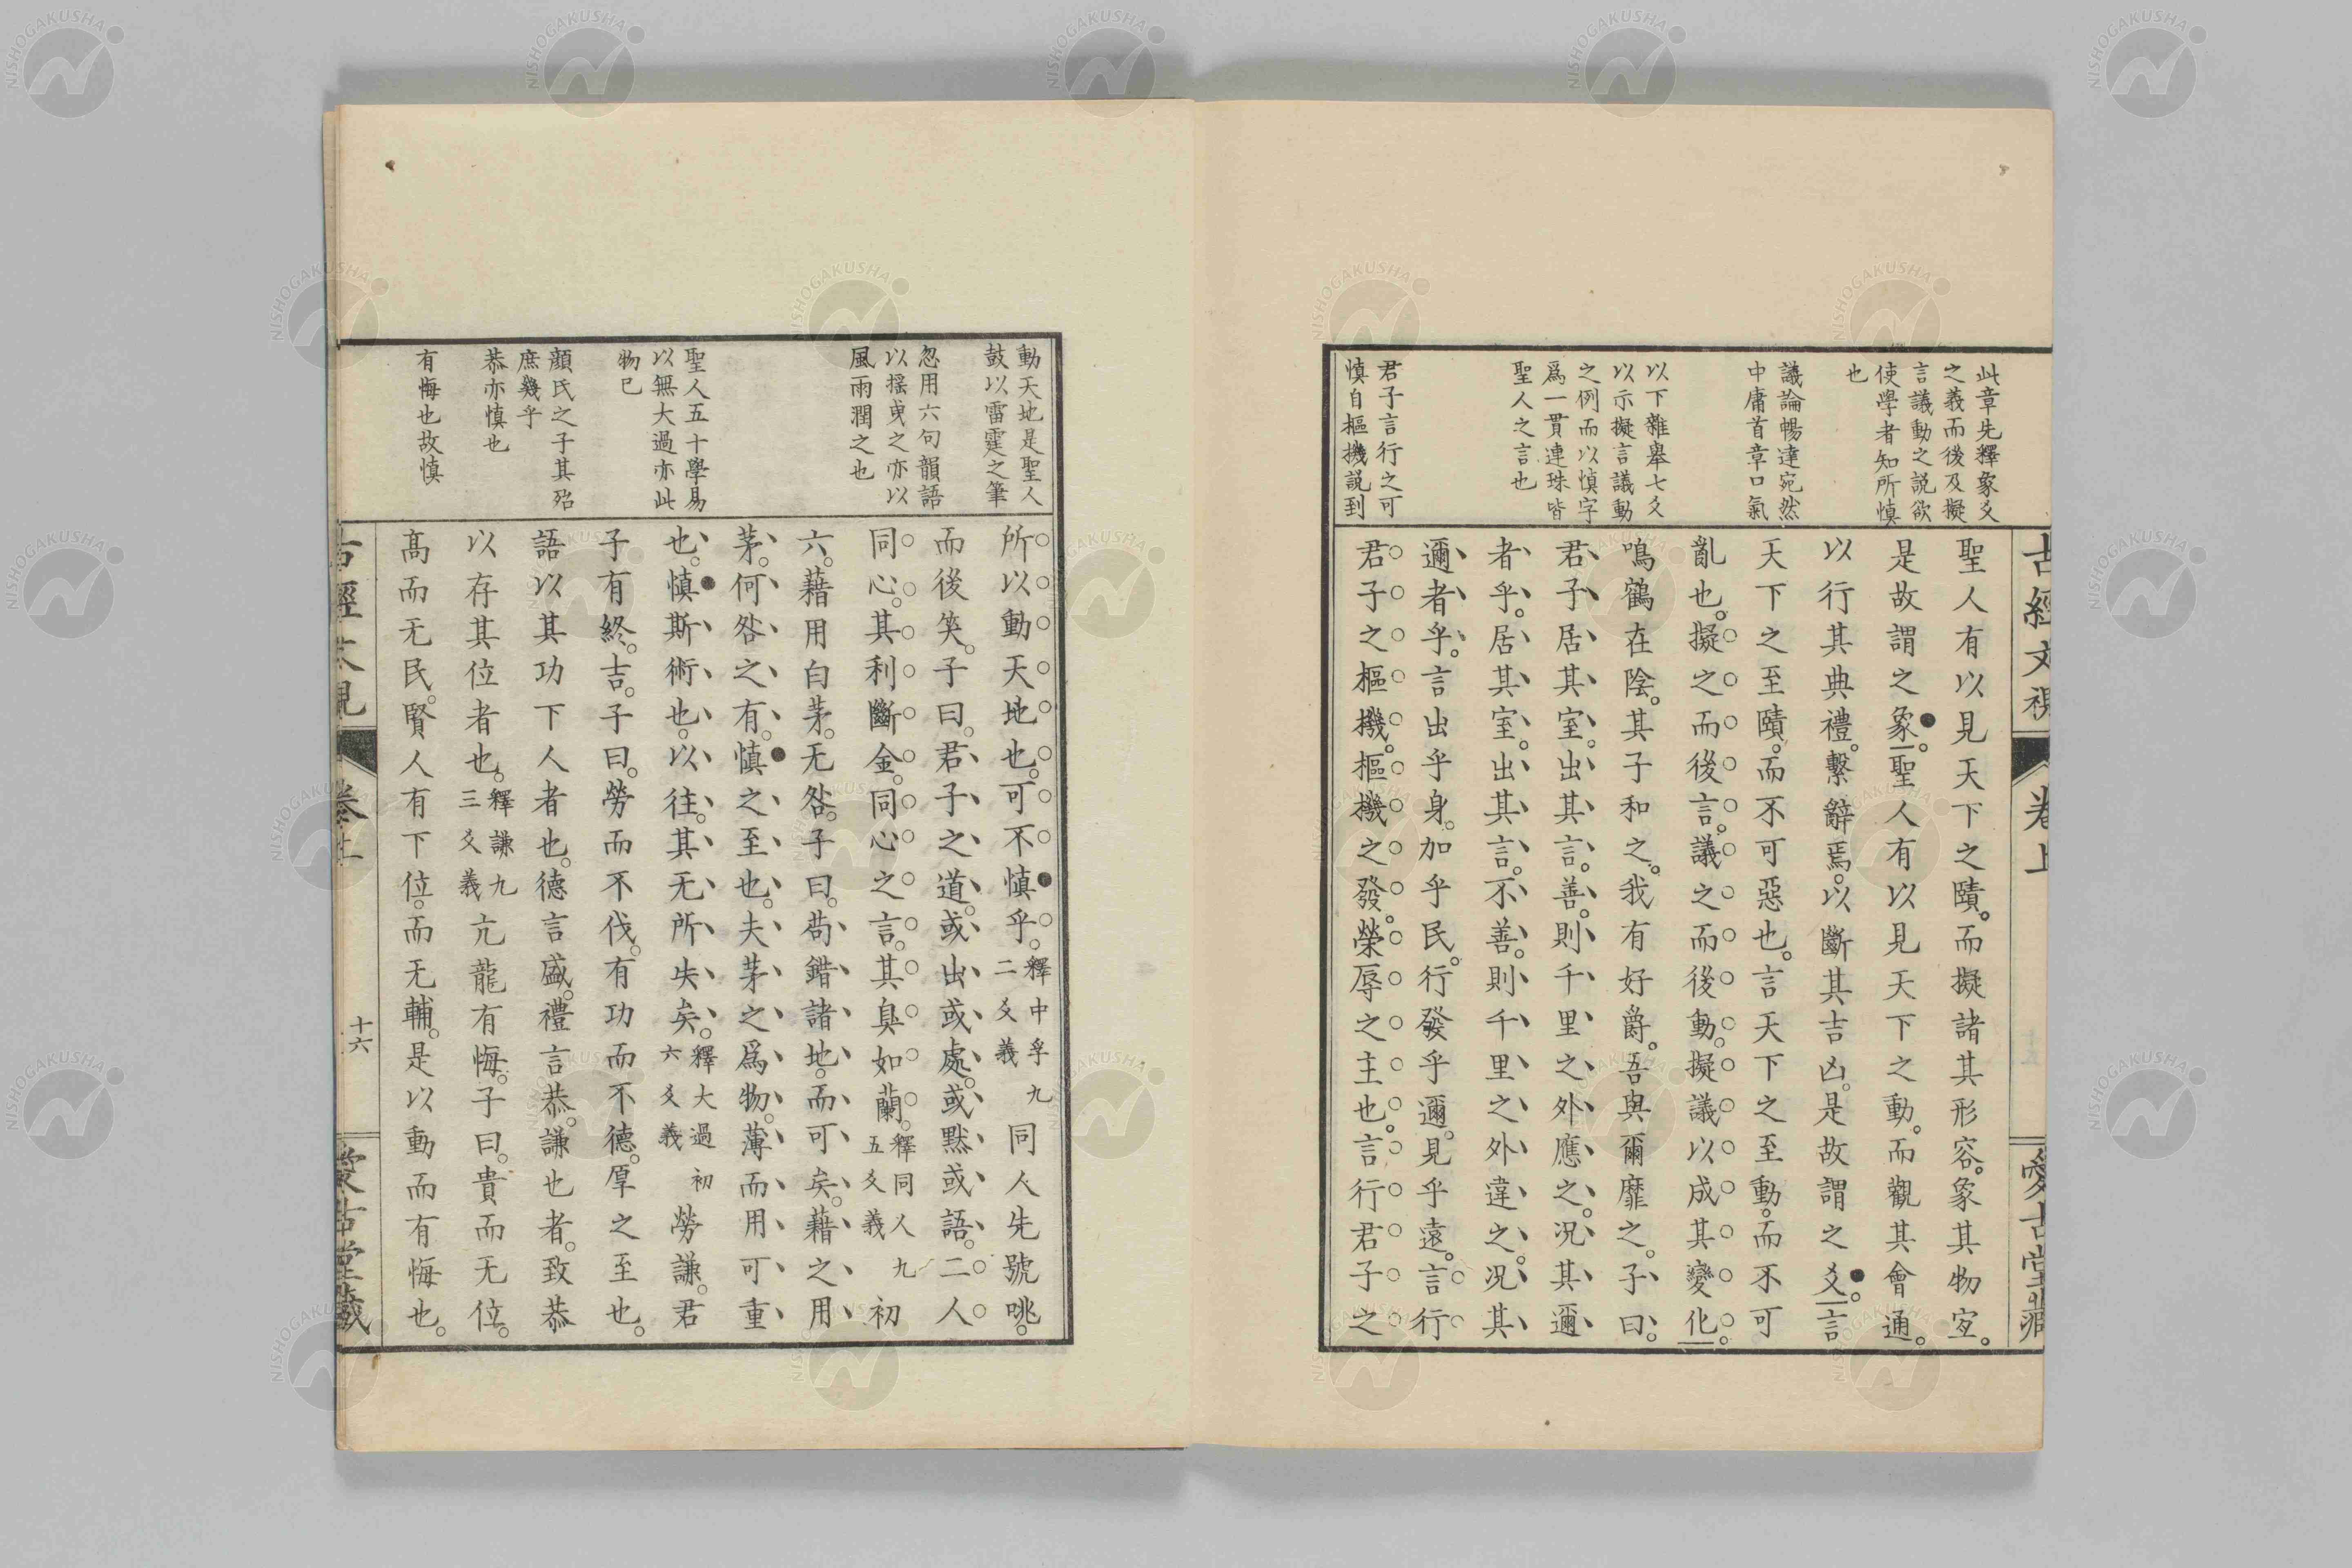 古經文視
卷上
愛古堂藏
此章先釋象爻
之義而後及擬
言議動之説欲
使學者知所慎
也
議論暢達宛然
中庸首章口氣
以下雜舉七爻
以示擬言議動
之例而以慎字
爲一貫連珠皆
聖人之言也
君子言行之可
慎自樞機説到
聖人有以見天下之賾。而擬諸其形容。象其物宜。
是故謂之象。聖人有以見天下之動。而觀其會通。
以行其典禮。繫辭焉。以斷其吉凶。是故謂之爻。言
天下之至賾。而不可惡也。言天下之至動。而不可
亂也。擬之而後言。議之而後動。擬議以成其變化。
鳴鶴在陰。其子和之。我有好爵。吾與爾靡之。子曰。
君子居其室。出其言。善。則千里之外應之。况其邇
者乎。居其室。出其言。不善。則千里之外違之。况其
邇者乎。言出乎身。加乎民。行發乎邇。見乎遠。言行
君子之樞機。樞機之發。榮辱之主也。言行君子之
動天地是聖人
鼓以雷霆之筆
忽用六句韻語
以揺曵之亦以
風雨潤之也
聖人五十學易
以無大過亦此
物已
顔氏之子其殆
庶幾乎
恭亦慎也
有悔也故慎
所以動天地也。可不慎乎。釋中孚九二爻義同人先號咷。
而後笑。子曰。君子之道。或出或處。或默或語。二人
同心。其利斷金。同心之言。其臭如蘭。釋同人九五爻義初
六。藉用白茅。无咎。子曰。苟錯諸地。而可矣。藉之用
茅。何咎之有。慎之至也。夫茅之爲物。薄而用可重
也。慎斯術也。以往。其无所失矣。釋大過初六爻義勞謙。君
子有終。吉。子曰。勞而不伐。有功而不德。厚之至也。
語以其功下人者也。德言盛。禮言恭。謙也者。致恭
以存其位者也。釋謙九三爻義亢龍有悔。子曰。貴而无位。
高而无民。賢人有下位。而无輔。是以動而有悔也。
古經文視
卷上
十六
愛古堂藏
NISHOGAKUSHA